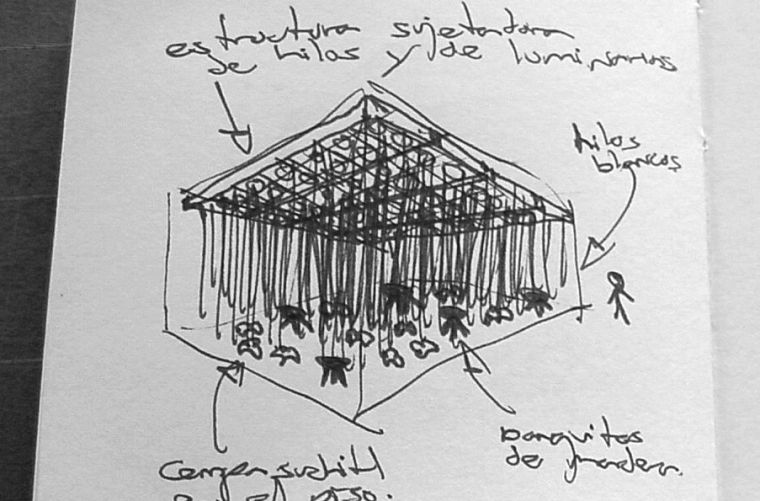 estructura sujetadora
de hilos y de luminarias
hilos
blancos
banquitos
de madera.
en el piso.